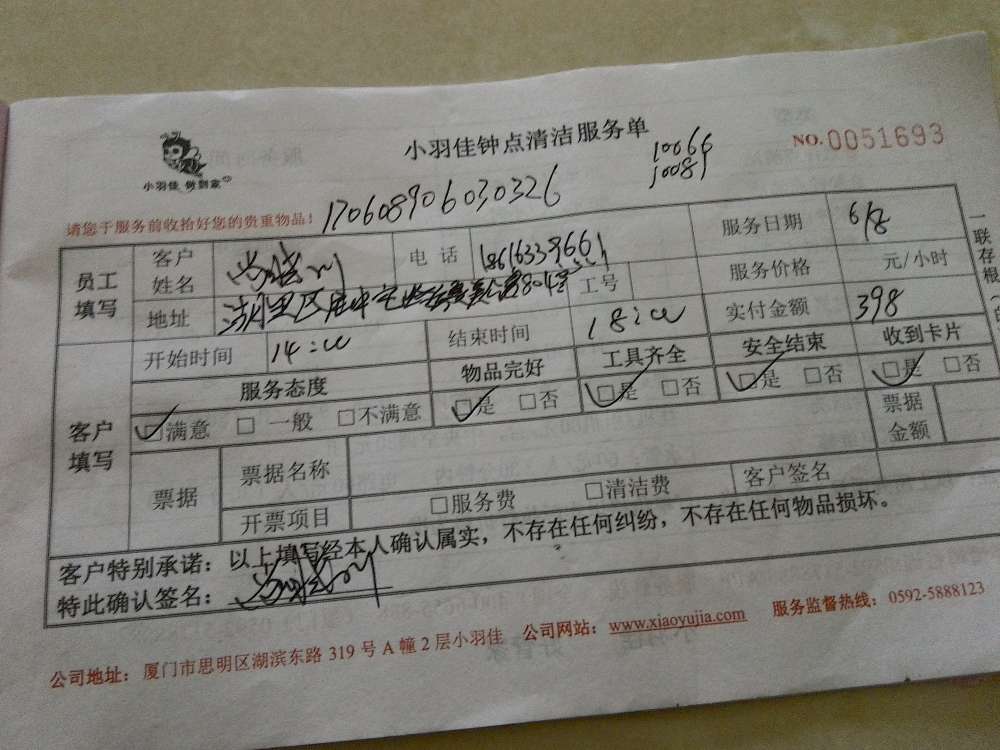 小羽佳 做到家
小羽佳钟点清洁服务单
10066
10089
NO.0051693
请您于服务前收拾好您的贵重物品！
170608906030326
员工填写
客户姓名
电话
服务日期 6/8
地址 湖里区
工号
服务价格 元/小时
实付金额 398
客户填写
开始时间 14:00 结束时间 18:00
服务态度 物品完好 工具齐全 安全结束 收到卡片
☑满意 □ 一般 □不满意 ☑是 □否 ☑是 □否 ☑是 □否 ☑是 □否
票据
票据名称
票据金额
开票项目 □服务费 □清洁费 客户签名
客户特别承诺：以上填写经本人确认属实，不存在任何纠纷，不存在任何物品损坏。
特此确认签名：
公司地址：厦门市思明区湖滨东路 319 号 A 幢 2 层小羽佳 公司网站：www.xiaoyujia.com 服务监督热线：0592-5888123
一联存根